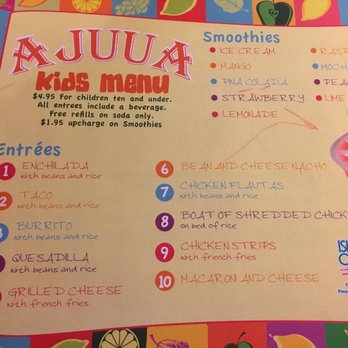 AJUUA
Kids menu
$4.95 For children ten and under.
All entrees include a beverage.
Free refills on soda only.
$1.95 upcharge on Smoothies
Smoothies
ICE CREAM
MANGO
PINA COLADA
STRAWBERRY
LEMONADE
RASP
MOCH
PEA
LIME
Entrées
1 ENCHILADA
with beans and rice
2 TACO
with beans and rice
3 BURRITO
with beans and rice
QUESADILLA
with beans and rice
GRILLED CHEESE
with french fries
6 BEAN AND CHEESE NACHO
7 CHICKEN FLAUTAS
with beans and rice
8 BOAT OF SHREDDED CHICK
on bed of rice
9 CHICKEN STRIPS
with french fries
10 MACARONI AND CHEESE